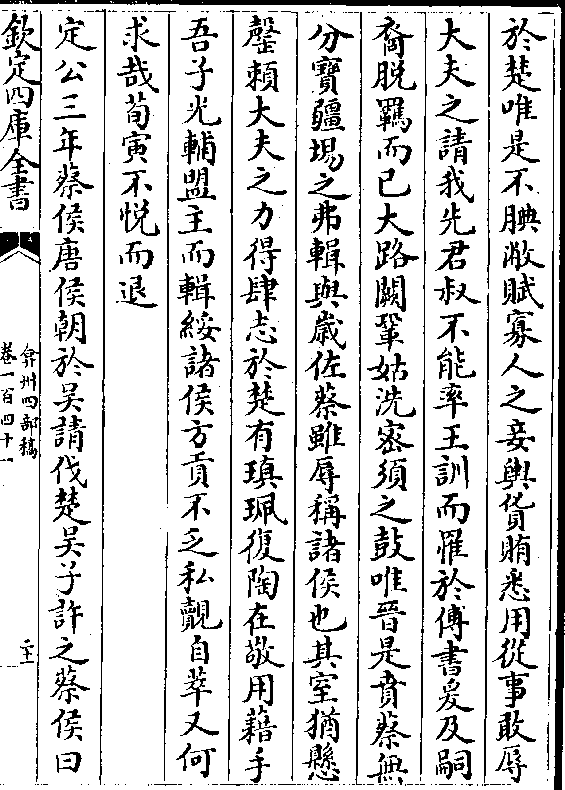 於楚唯是不腆敝賦寡人之妾輿貨賄悉用從事敢辱
大夫之請我先君叔不能率王訓而罹於傅書爰及嗣
裔脱羈而已大路闕鞏姑洗密須之鼓唯晉是賁蔡無
分寶疆場之弗輯與歲佐蔡雖辱稱諸侯也其室猶懸
罄頼大夫之力得肆志於楚有瑱珮復陶在敬用藉手
吾子光輔盟主而輯綏諸侯方貢不乏私覿自萃又何
求哉荀寅不悦而退
定公三年蔡侯唐侯朝於吴請伐楚吴子許之蔡侯曰
欽定四庫全書
弇州四部稿
卷一百四十一
二十一